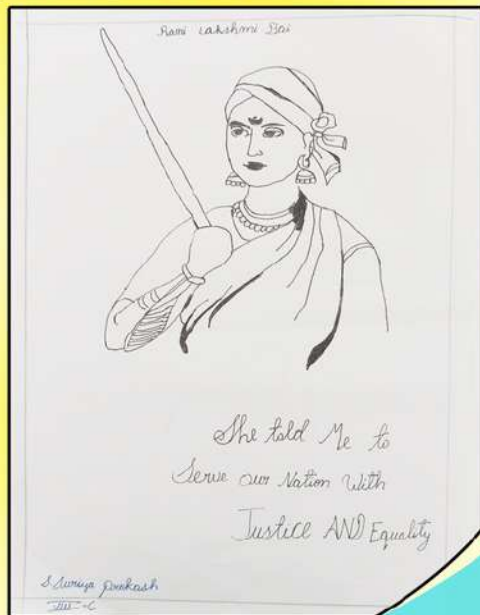 Rani Lakshmi Bai
She told Me to
Serve our Nation With
Justice AND Equality
S. Suriya Prakash
VIII -C